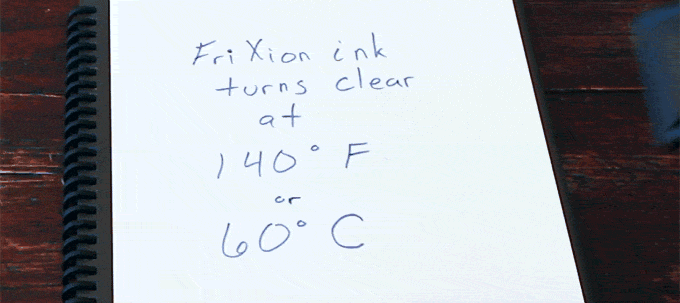 FriXion ink
turns clear
at
140° F
or
60° C